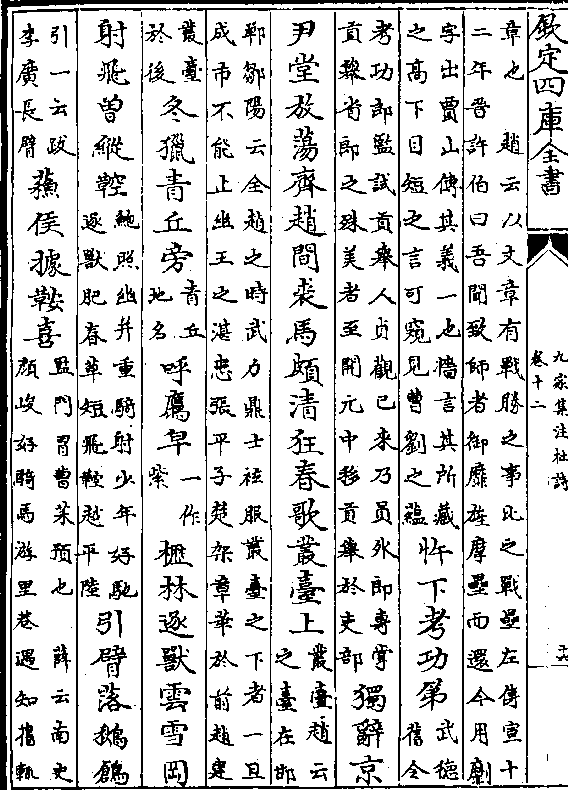 欽定四庫全書
九家集注杜詩
卷十二
章也　趙云以文章有戰勝之事比之戰壘左傳宣十
二年晉許伯曰吾聞致師者御靡旌摩壘而還今用劘
字出賈山傳其義一也牆言其所藏
之高下目短之言可窺見曹劉之蘊
忤下考功第
武德
舊令
考功郎監試貢舉人貞觀已來乃員外郎專掌
貢舉省郎之殊美者至開元中移貢舉於吏部
獨辭京
尹堂放蕩齊趙間裘馬頗清狂春歌叢臺上
叢臺趙云
之臺在邯
鄲鄒陽云全趙之時武力鼎士袨服叢臺之下者一旦
成市不能止幽王之湛患張平子楚架章華於前趙建
叢臺
於後
冬獵青丘旁
青丘
地名
呼鷹皁
一作
紫
櫪林逐獸雲雪岡
射飛曾縱鞚
鮑照幽并重騎射少年好馳
逐獸肥春草短飛鞚越平陸
引臂落鶖鶬
引一云跋
李廣長臂
蘓侯據鞍喜
監門胄曹某預也　薛云南史
顔峻好騎馬遊里巷遇知舊輒